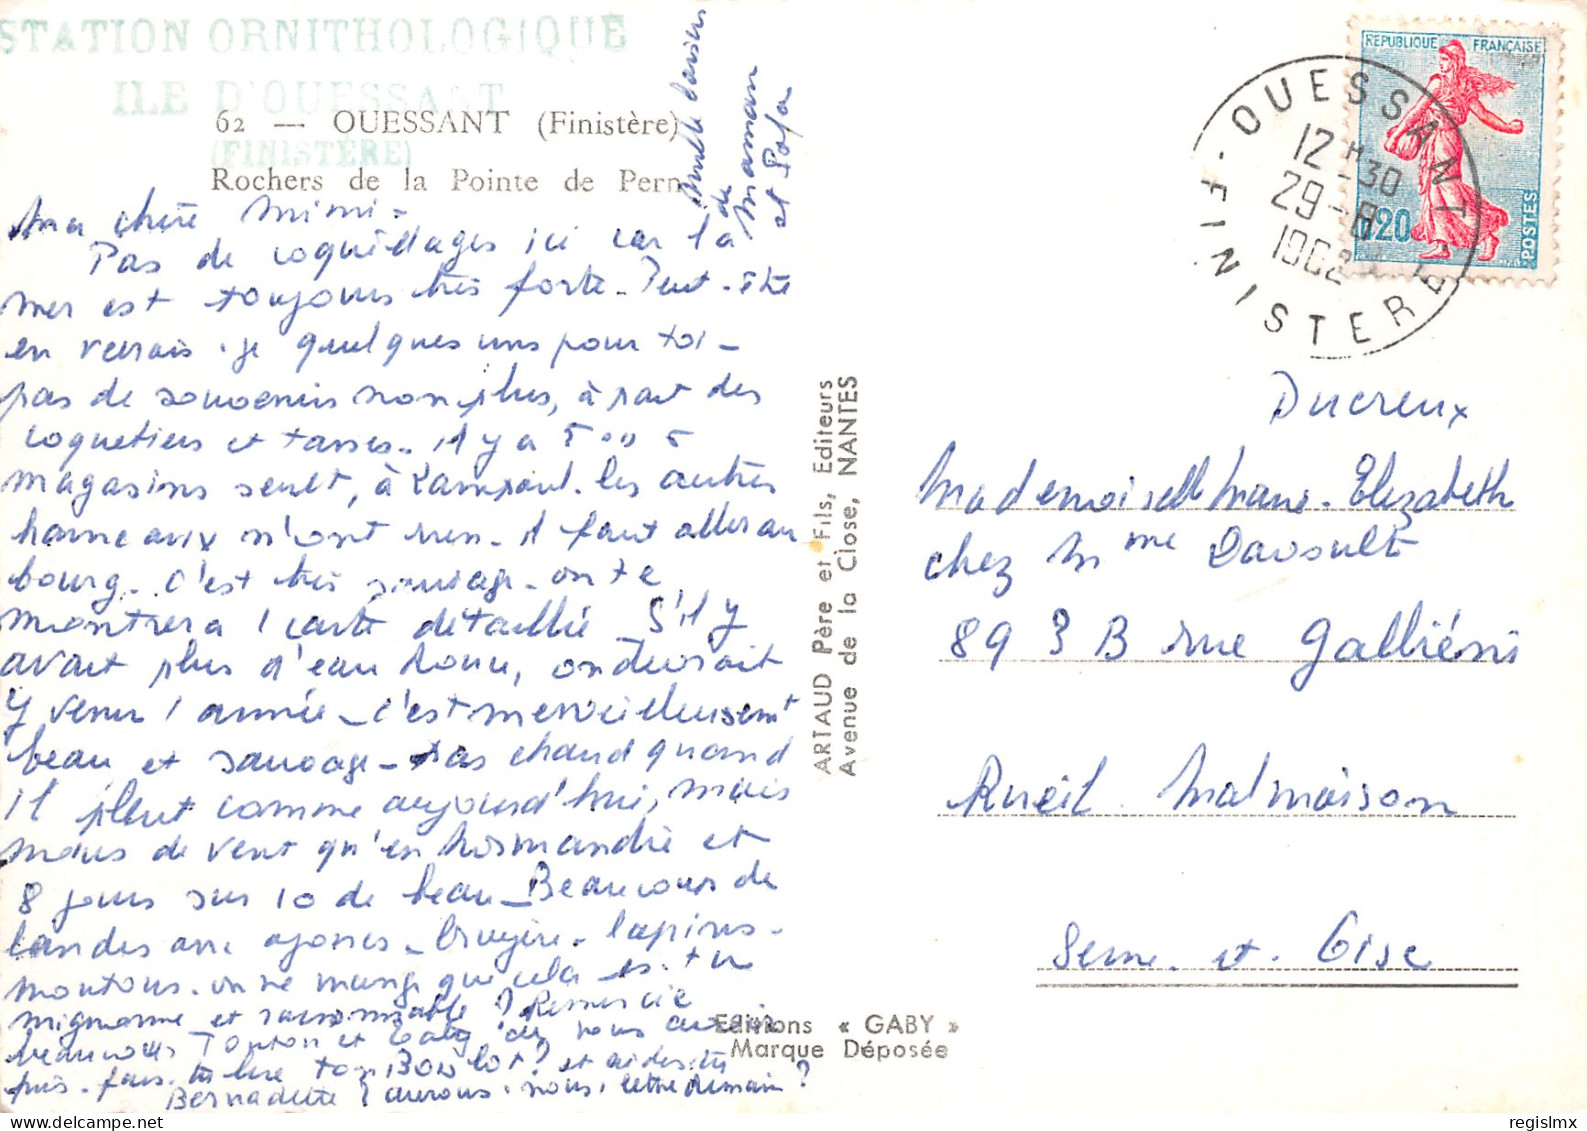 STATION ORNITHOLOGIQUE
ILE D'OUESSANT
(FINISTÈRE)
62 — OUESSANT (Finistère)
Rochers de la Pointe de Pern
Mille baisers
de Maman
et Papa
Ma chère Mimi -
Pas de coquillages ici car la
mer est toujours très forte - Peut-être
en verrais-je quelques uns pour toi -
pas de souvenirs non plus, à part des
coquetiers et tasses - il y a 5 ou 6
magasins seult, à Lampaul. les autres
hameaux n'ont rien - il faut aller au
bourg - C'est très sauvage - on te
montrera 1 carte détaillée S'il y
avait plus d'eau douce, on devrait
y venir 1 année - C'est merveilleusemt
beau et sauvage - Pas chaud quand
il pleut comme aujourd'hui, mais
moins de vent qu'en Normandie et
8 jours sur 10 de beau - Beaucoup de
landes avec ajoncs - bruyère - lapins -
moutons - on ne mange que cela es-tu
mignonne et raisonnable ? Remercie
beaucoup Tonton et de nous avoir
pris - fais-tu bien ton Boulot ? et aides-tu
Bernadette ? aurons-nous 1 lettre demain ?
ARTAUD Père et Fils, Editeurs
Avenue de la Close, NANTES
Editions « GABY »
Marque Déposée
REPUBLIQUE FRANÇAISE
0,20
POSTES
OUESSANT
12 H 30
29 - 8
1962
FINISTERE
Ducreux
Mademoiselle Marie-Elizabeth
chez Mme Davoult
89 3 B rue Galliéni
Rueil Malmaison
Seine-et-Oise
regislmx